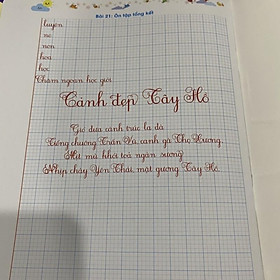 Bài 21: Ôn tập tổng kết
luyện
nề
nón
hoa
học
Chăm ngoan học giỏi
Cảnh đẹp Tây Hồ
Gió đưa cành trúc la đà
Tiếng chuông Trấn Vũ canh gà Thọ Xương.
Mịt mù khói toả ngàn sương
Nhịp chày Yên Thái, mặt gương Tây Hồ.